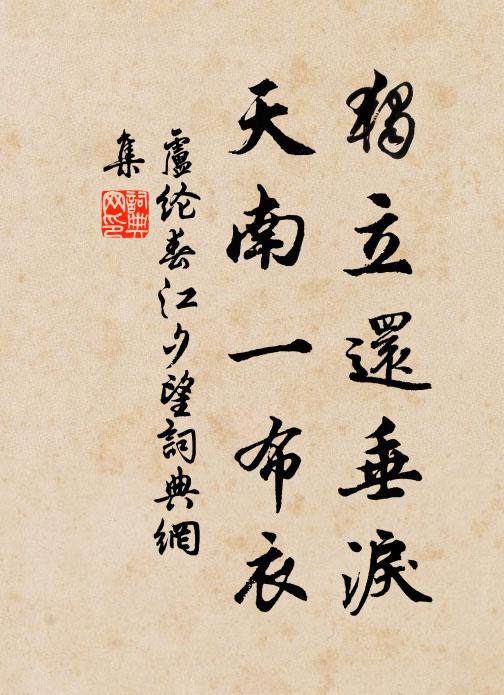 獨立還垂淚
天南一布衣
盧纶春江夕望詞典網
集
詞典
网印